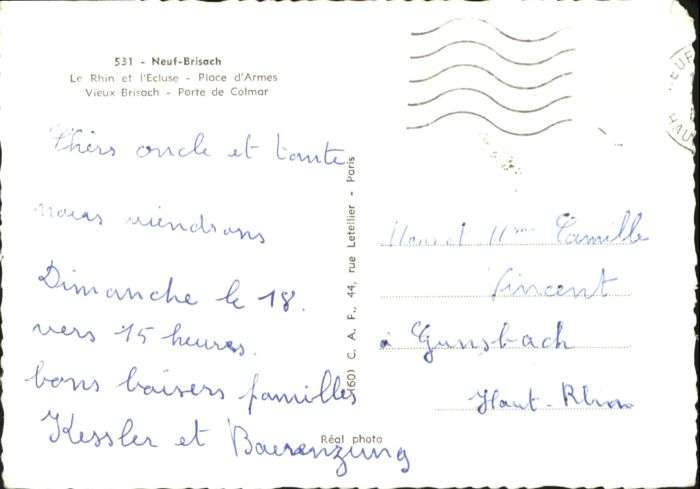 531 - Neuf-Brisach
Le Rhin et l'Ecluse - Place d'Armes
Vieux-Brisach - Porte de Colmar
Chers oncle et tante
nous viendrons
Dimanche le 18.
vers 15 heures.
bons baisers familles
Kessler et Baerenzung
(60) C. A. P., 44, rue Letellier - Paris
Réal photo
Mme Camille
Vincent
à Gunsbach
Haut-Rhin